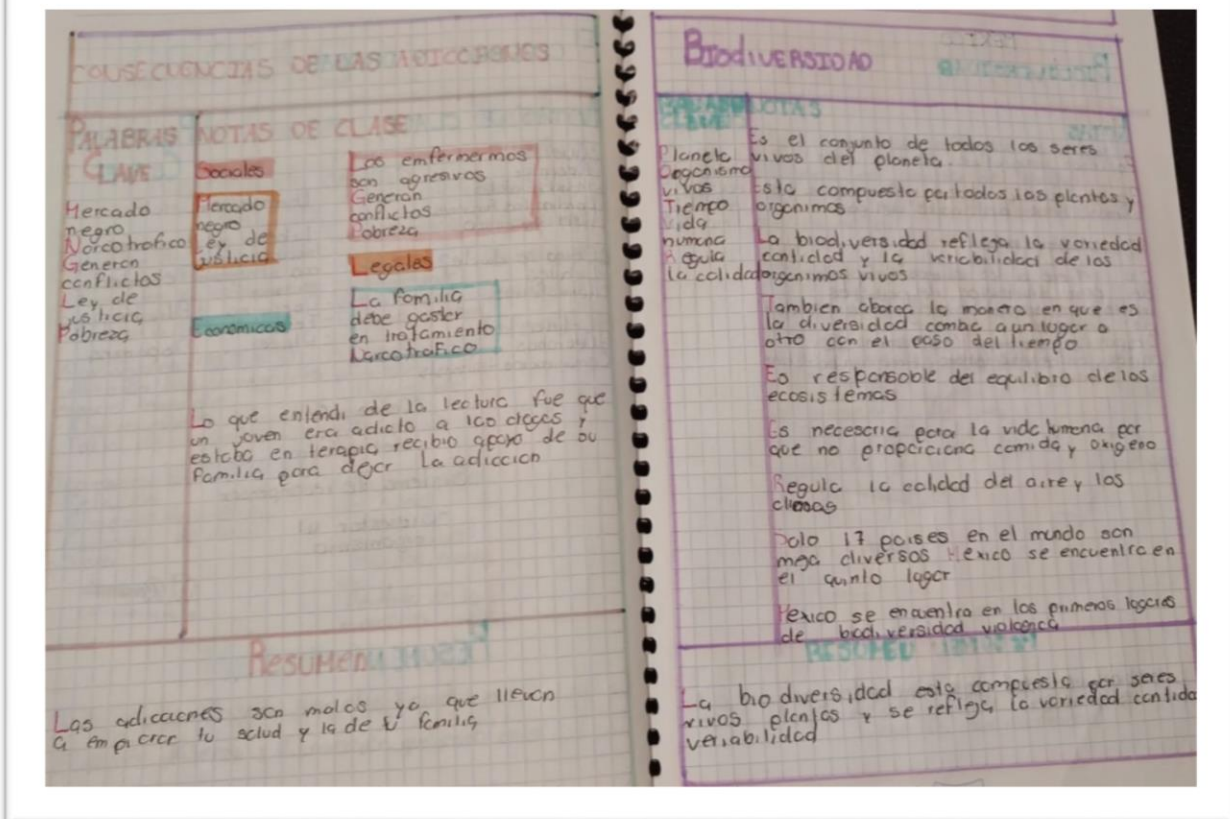 CONSECUENCIAS DE LAS ADICCIONES
PALABRAS CLAVE
Mercado
negro
Narcotrafico
Generan
conflictos
Ley de
justicia
Pobreza
NOTAS DE CLASE
Sociales
Mercado
negro
Ley de
justicia
Economicas
Los emfermermos
son agresivos
Generan
conflictos
Pobreza
Legales
La familia
debe gastar
en tratamiento
Narcotrafico
Lo que entendi de la lectura fue que
un joven era adicto a las drogas y
estaba en terapia recibio apoyo de su
familia para dejar la adiccion
Resumen
Las adicciones son malas ya que llevan
a empeorar tu salud y la de tu familia
BIODIVERSIDAD
PALABRAS
CLAVE
Planeta
Organismo
vivos
Tiempo
Vida
humana
Regula
la calidad
NOTAS
Es el conjunto de todos los seres
vivos del planeta.
Esta compuesto por todos las plantas y
organimos
La biodiversidad refleja la variedad
cantidad y la veriabilidad de los
organimos vivos
Tambien aborca la manera en que es
la diversidad comba a un lugar a
otro con el paso del tiempo
Es responsable del equilibrio de los
ecosistemas
Es necesaria para la vida humana por
que no proporciona comida y oxigeno
Regula la calidad del aire y los
climas
Solo 17 paises en el mundo son
mega diversos Mexico se encuentra en
el quinto lugar
Mexico se encuentra en los primeros lugares
de biodiversidad
RESUMEN
La biodiversidad esta compuesta por seres
vivos plantas y se refleja la variedad cantida
veriabilidad